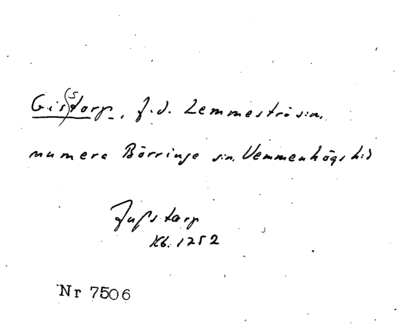 Gis(s)torp, f.d. Lemmeströ sn.
numera Börringe sn. Vemmenhögs hd
Juſstarp
Kb. 1252
Nr 7506